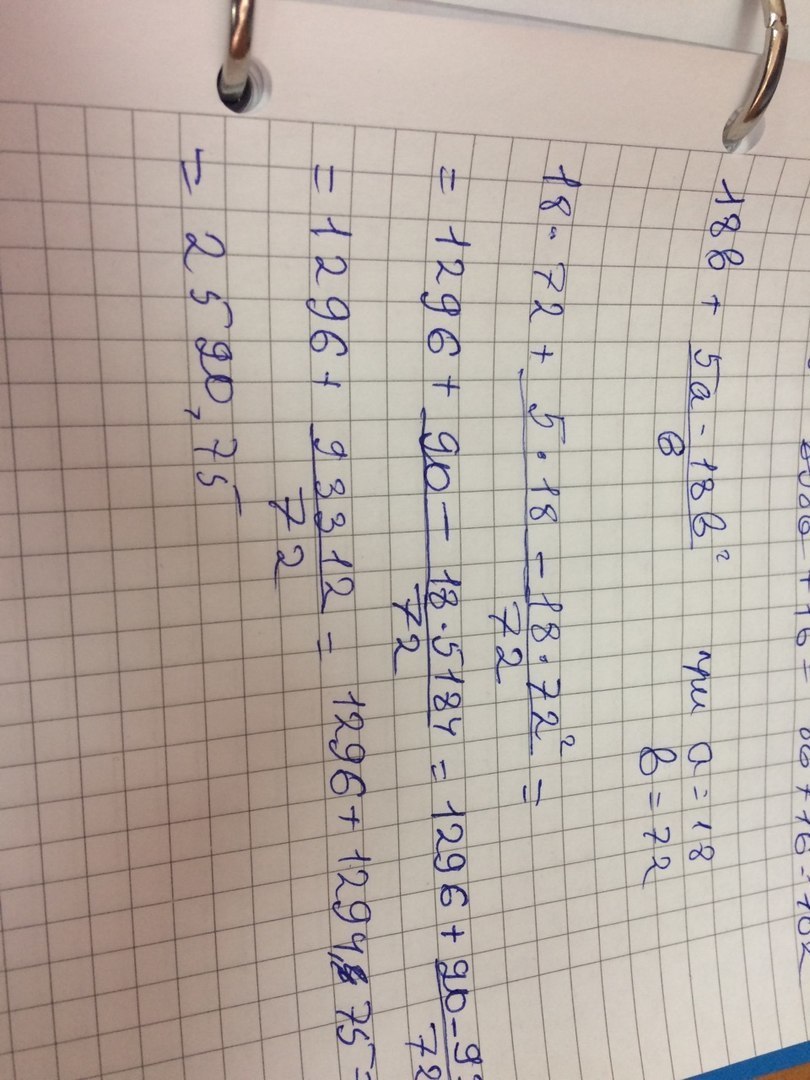 18в + (5а - 18в²)/в при а = 18
в = 72
18 · 72 + (5 · 18 - 18 · 72²)/72 =
= 1296 + (90 - 18 · 5184)/72 = 1296 + (90 - 9
72
= 1296 + 93312/72 = 1296 + 1294,75 =
= 2590,75